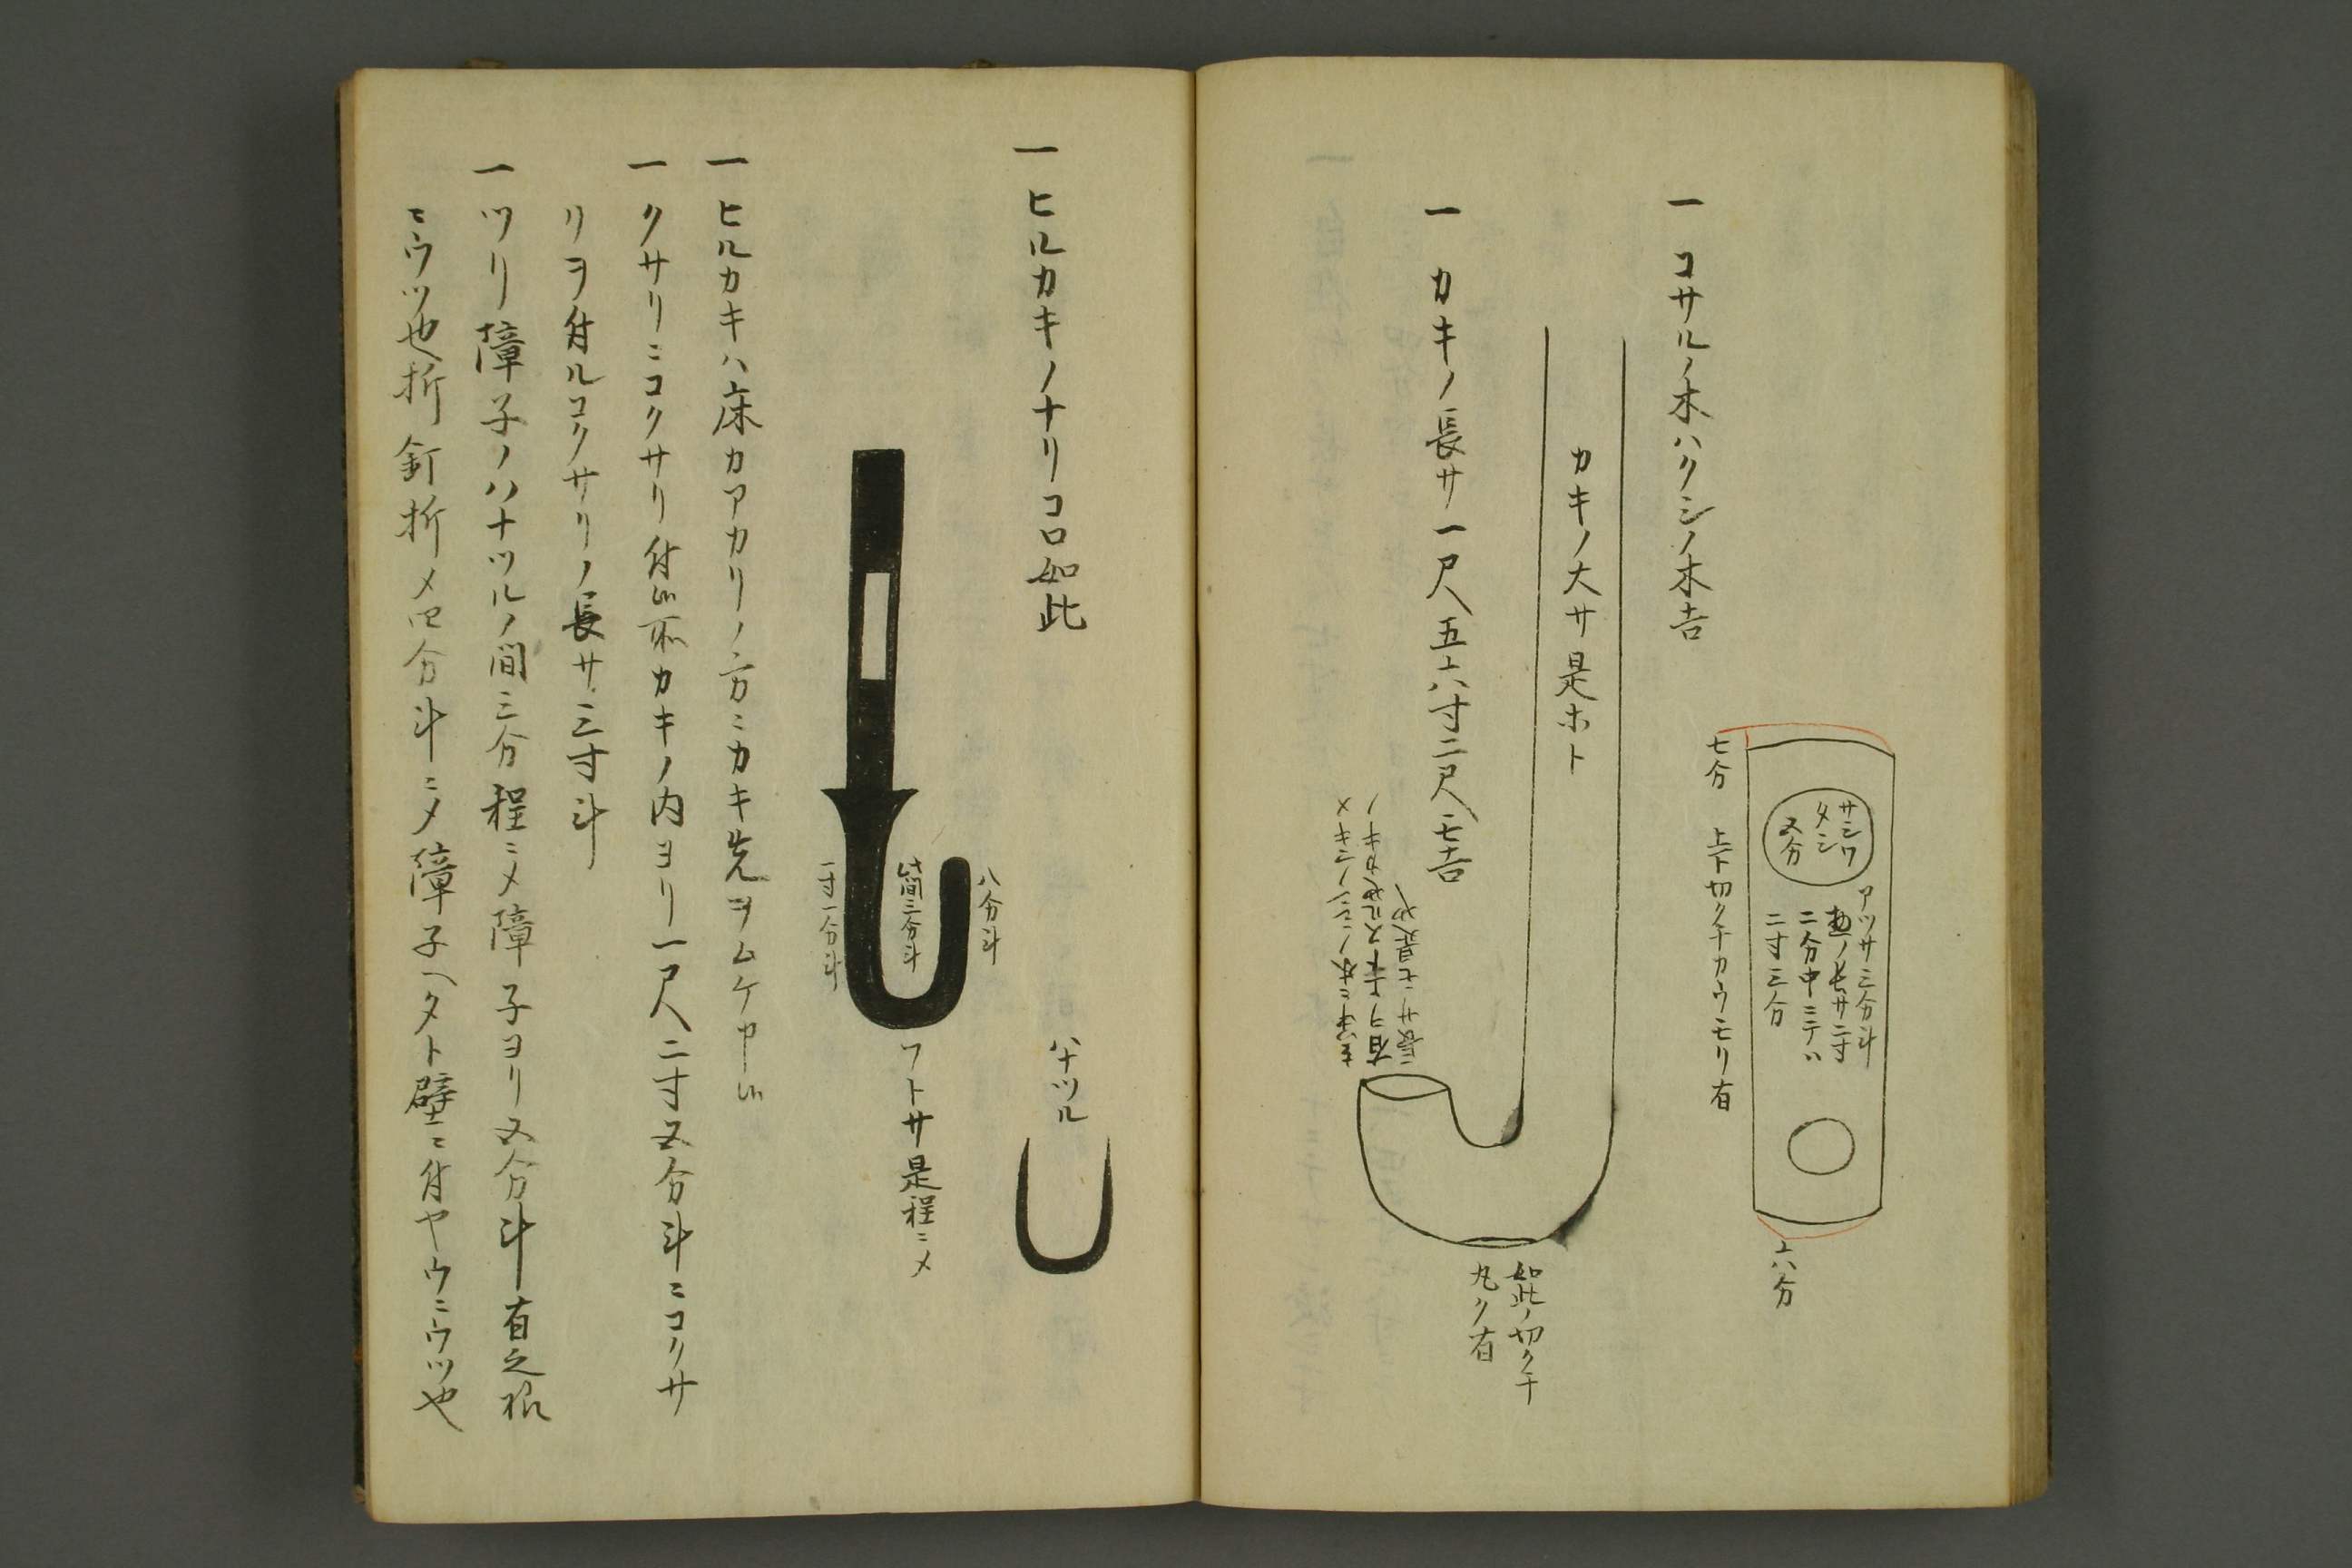 一 コサルノ木ハクシノ木吉
サシワ
タシ
五分
アツサ三分斗
ノ長サ二寸
二分中ニテハ
二寸三分
七分 上下切クチカウモリ有
六分
カキノ大サ是ホト
一 カキノ長サ一尺五六寸二尺モ吉
長サニモ見ヘ
如此ノ切クチ
丸ク有
一 ヒルカキノナリコロ如此
ハナツル
八分斗
此間三分斗
一寸一分斗
フトサ是程ニメ
一 ヒルカキハ床カアカリノ方ニカキ先ヲムケ申候
一 クサリニコクサリ付候所カキノ内ヨリ一尺二寸五分斗ニコクサ
リヲ付ルコクサリノ長サ三寸斗
一 ツリ障子ノハナツルノ間三分程ニメ障子ヨリ五分斗有之様
ニウツ也折釘折メ四分斗ニメ障子ヘタト壁ニ付ヤウニウツ也